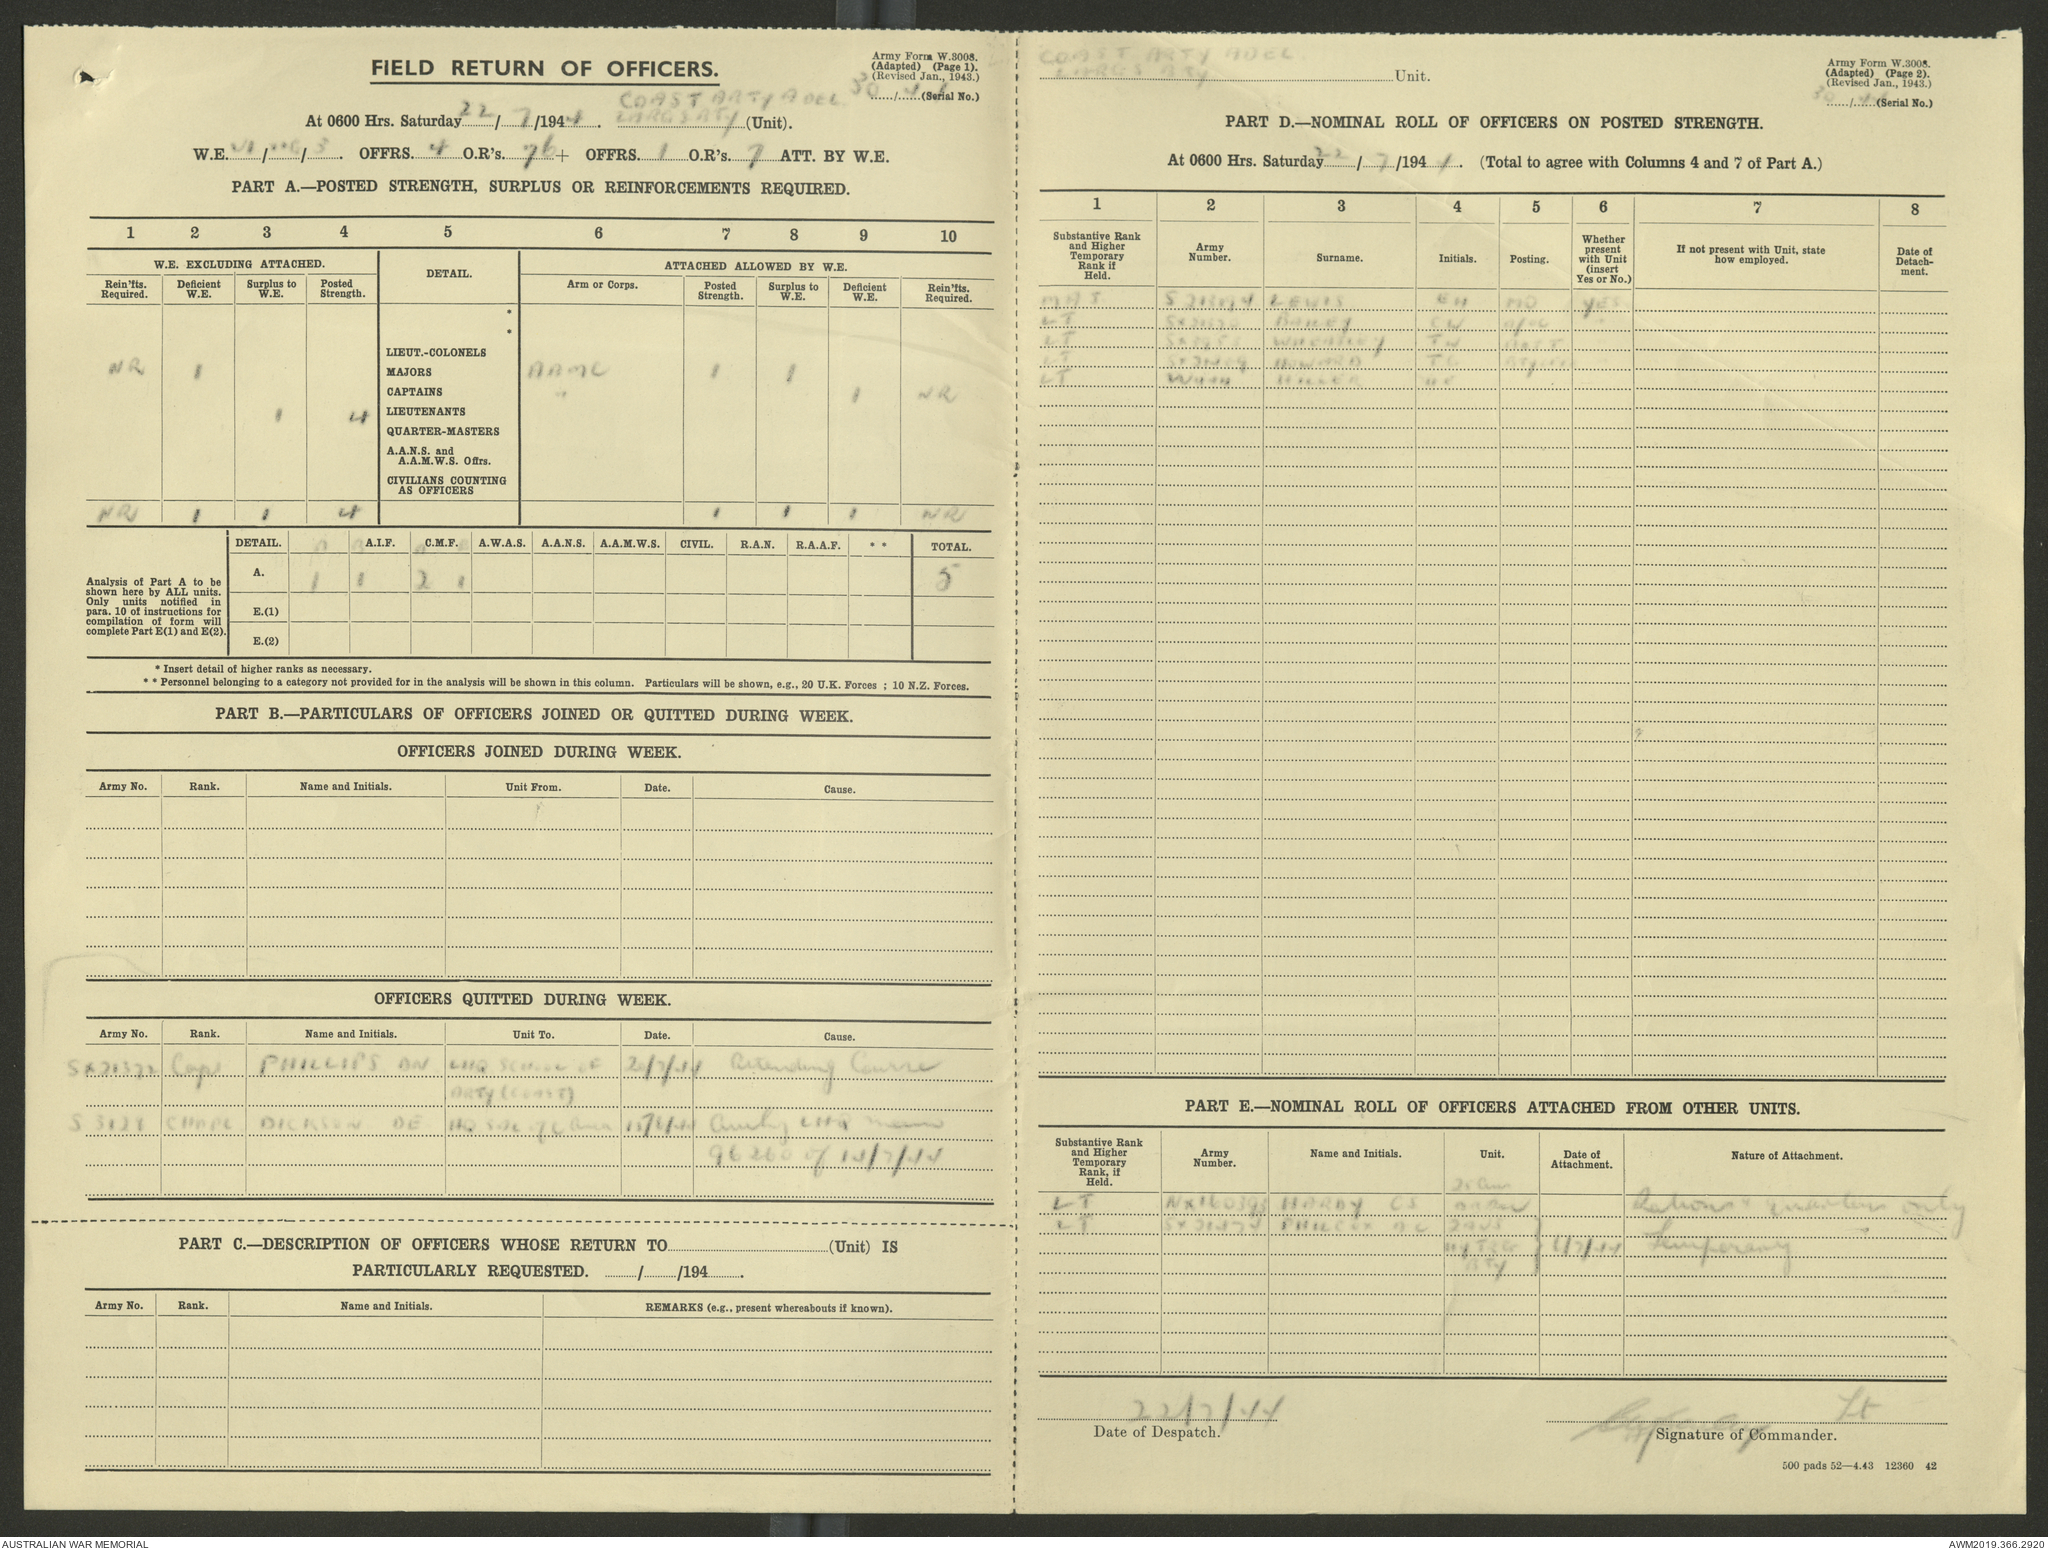 FIELD RETURN OF OFFICERS.
Army Form W.3008.
(Adapted) (Page 1).
(Revised Jan., 1943.)
30 / 44 (Serial No.)
COAST ARTY ADEL
At 0600 Hrs. Saturday 22 / 7 /1944. LARGS BTY (Unit).
W.E. VI / / 3. OFFRS. 4 O.R's. 76 + OFFRS. 1 O.R's. 7 ATT. BY W.E.
PART A.—POSTED STRENGTH, SURPLUS OR REINFORCEMENTS REQUIRED.
1 2 3 4 5 6 7 8 9 10
W.E. EXCLUDING ATTACHED. DETAIL. ATTACHED ALLOWED BY W.E.
Rein'fts. Required. Deficient W.E. Surplus to W.E. Posted Strength. Arm or Corps. Posted Strength. Surplus to W.E. Deficient W.E. Rein'fts. Required.
*
*
LIEUT.-COLONELS
NR 1 MAJORS AAMC 1 1
CAPTAINS " 1 NR
1 4 LIEUTENANTS
QUARTER-MASTERS
A.A.N.S. and
A.A.M.W.S. Offrs.
CIVILIANS COUNTING
AS OFFICERS
NR 1 1 4 1 1 1 NR
DETAIL. A.I.F. C.M.F. A.W.A.S. A.A.N.S. A.A.M.W.S. CIVIL. R.A.N. R.A.A.F. * * TOTAL.
A. 1 1 2 1 5
E.(1)
E.(2)
Analysis of Part A to be
shown here by ALL units.
Only units notified in
para. 10 of instructions for
compilation of form will
complete Part E(1) and E(2).
* Insert detail of higher ranks as necessary.
* * Personnel belonging to a category not provided for in the analysis will be shown in this column. Particulars will be shown, e.g., 20 U.K. Forces ; 10 N.Z. Forces.
PART B.—PARTICULARS OF OFFICERS JOINED OR QUITTED DURING WEEK.
OFFICERS JOINED DURING WEEK.
Army No. Rank. Name and Initials. Unit From. Date. Cause.
OFFICERS QUITTED DURING WEEK.
Army No. Rank. Name and Initials. Unit To. Date. Cause.
Capt PHILLIPS AN LHQ SCHOOL OF /7/44 Attending Course
ARTY (COAST)
CHAPL DICKSON DE HQ LHQ
96260 of 14/7/44
PART C.—DESCRIPTION OF OFFICERS WHOSE RETURN TO (Unit) IS
PARTICULARLY REQUESTED. / /194 .
Army No. Rank. Name and Initials. REMARKS (e.g., present whereabouts if known).
COAST ARTY ADEL
LARGS BTY Unit.
Army Form W.3008.
(Adapted) (Page 2).
(Revised Jan., 1943.)
30 / 44 (Serial No.)
PART D.—NOMINAL ROLL OF OFFICERS ON POSTED STRENGTH.
At 0600 Hrs. Saturday 22 / 7 /1944. (Total to agree with Columns 4 and 7 of Part A.)
1 2 3 4 5 6 7 8
Substantive Rank and Higher Temporary Rank if Held. Army Number. Surname. Initials. Posting. Whether present with Unit (insert Yes or No.) If not present with Unit, state how employed. Date of Detach-ment.
MAJ LEWIS EH MO YES
LT BAILEY CW "
LT WHEATLEY TW
LT HOWARD
LT MILLER
PART E.—NOMINAL ROLL OF OFFICERS ATTACHED FROM OTHER UNITS.
Substantive Rank and Higher Temporary Rank, if Held. Army Number. Name and Initials. Unit. Date of Attachment. Nature of Attachment.
LT NX160393 HARDY CS Rations & quarters only
LT SX21474 PHILCOX AC /7/44 Temporary
BTY
22/7/44
Date of Despatch.
Lt
Signature of Commander.
500 pads 52—4.43 12360 42
AUSTRALIAN WAR MEMORIAL
AWM2019.366.2920